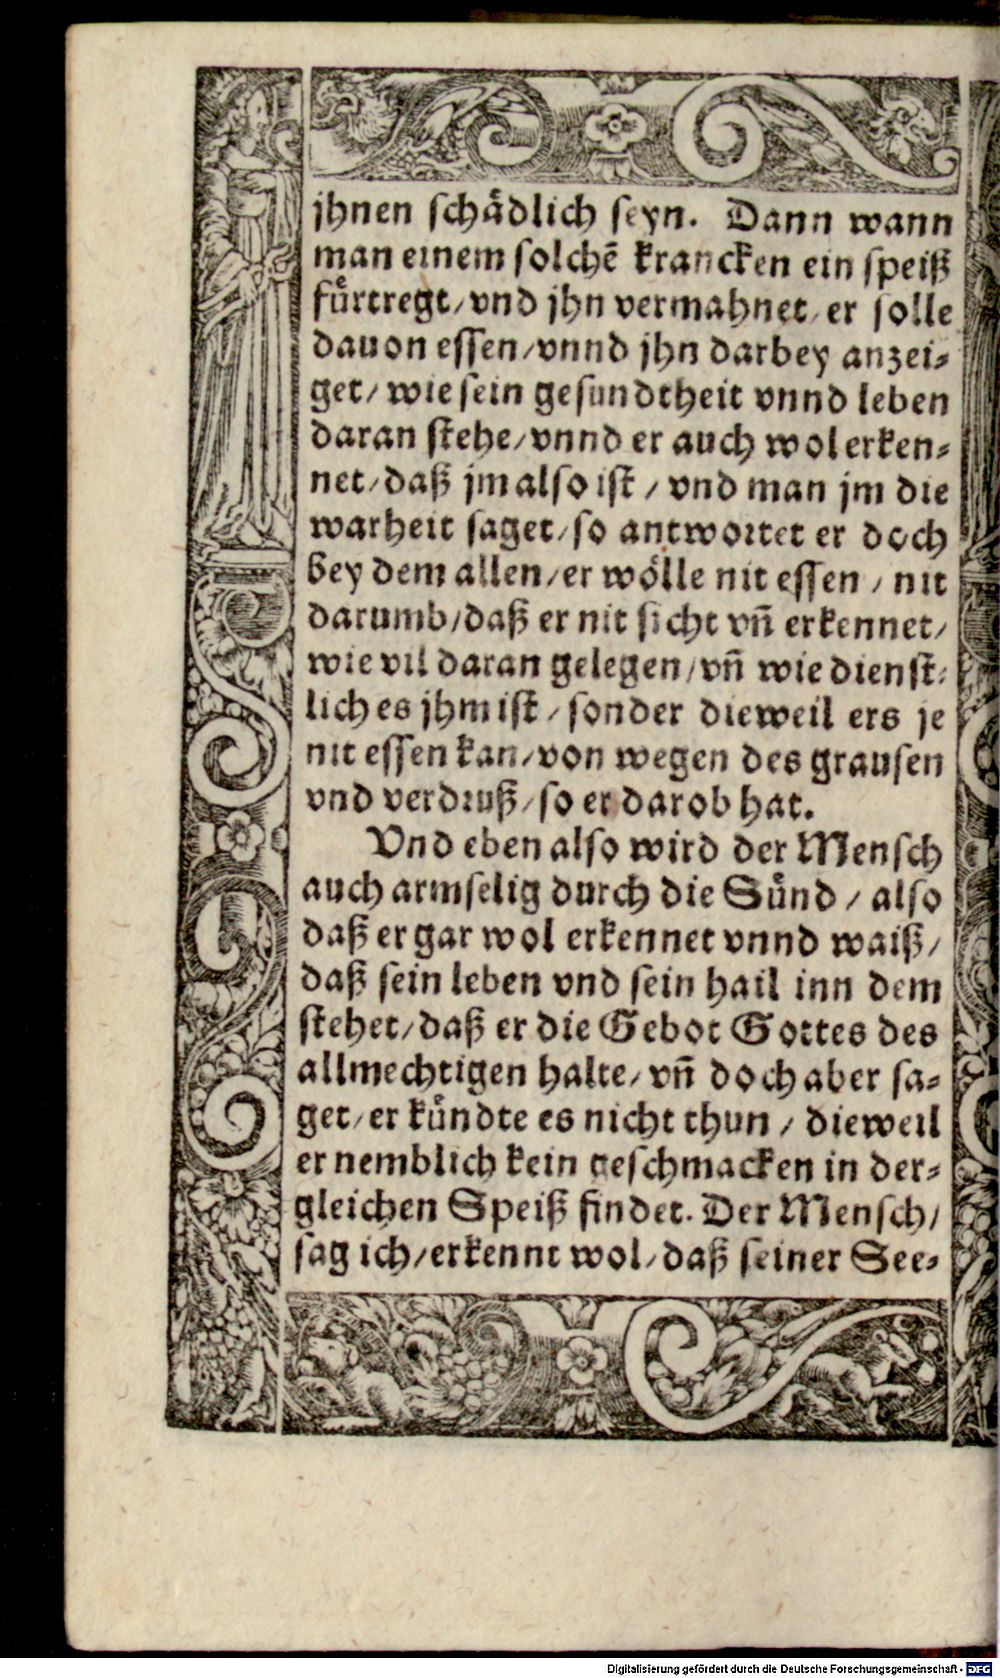 jhnen schaͤdlich seyn. Dann wann
man einem solchẽ krancken ein speiß
fuͤrtregt/ vnd jhn vermahnet/ er solle
dauon essen/ vnnd jhn darbey anzei⸗
get/ wie sein gesundtheit vnnd leben
daran stehe/ vnnd er auch wol erken⸗
net/ daß jm also ist / vnd man jm die
warheit saget/ so antwortet er doch
bey dem allen/ er woͤlle nit essen / nit
darumb/ daß er nit sicht vñ erkennet/
wie vil daran gelegen/ vñ wie dienst⸗
lich es jhm ist / sonder dieweil ers je
nit essen kan/ von wegen des grausen
vnd verdruß/ so er darob hat.
Vnd eben also wird der Mensch
auch armselig durch die Suͤnd / also
daß er gar wol erkennet vnnd waiß/
daß sein leben vnd sein hail inn dem
stehet/ daß er die Gebot Gottes des
allmechtigen halte/ vñ doch aber sa⸗
get/ er kuͤndte es nicht thun / dieweil
er nemblich kein geschmacken in der⸗
gleichen Speiß findet. Der Mensch/
sag ich/ erkennt wol/ daß seiner See⸗
Digitalisierung gefördert durch die Deutsche Forschungsgemeinschaft - DFG